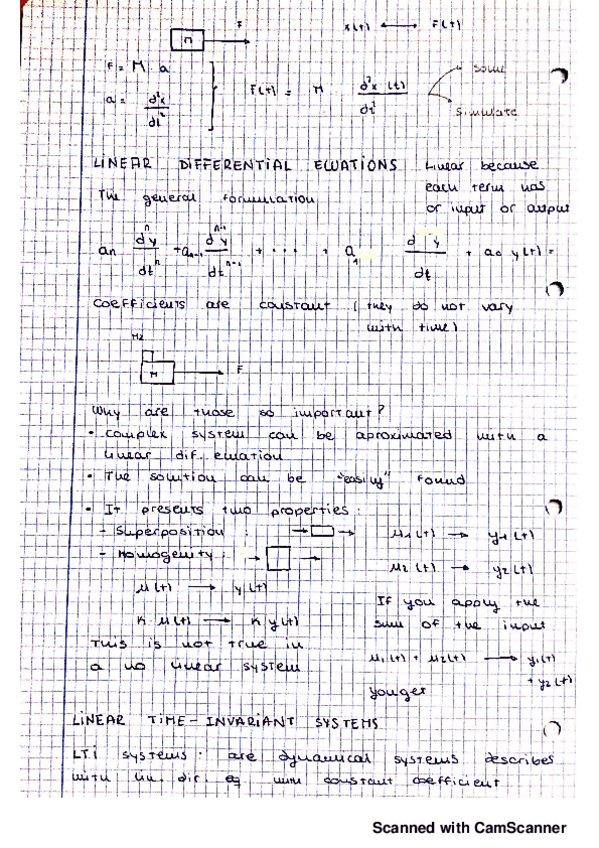 F
M
x(t) ⟷ F(t)
F = M · a
a = d²x / dt²
F(t) = M d²x(t) / dt²
Solve
Simulate
LINEAR DIFFERENTIAL EQUATIONS
Linear because
each term has
or input or output
The general formulation
an dⁿy / dtⁿ + an-1 dⁿ⁻¹y / dtⁿ⁻¹ + ... + a1 dy / dt + a0 y(t) =
coefficients are constant (they do not vary
with time)
M2
M
F
Why are those so important?
• complex system can be aproximated with a
linear dif. equation
• The solution can be "easily" found
• It presents two properties:
- Superposition :
- Homogenity :
μ(t) → y(t)
K μ(t) → K y(t)
This is not true in
a no linear system
μ1(t) → y1(t)
μ2(t) → y2(t)
If you apply the
sum of the input
μ1(t) + μ2(t) → y1(t)
+ y2(t)
you get
LINEAR TIME-INVARIANT SYSTEMS
LTI systems: are dynamical systems describes
with lin. dif. eq with constant coefficient
Scanned with CamScanner